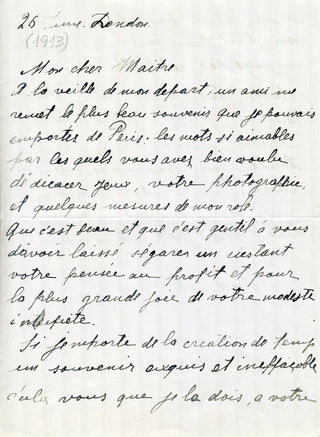 26 June. London
(1913)
Mon cher Maitre
A la veille de mon depart, un ami me
remet le plus beau souvenir que je pouvais
emporter de Paris. les mots si aimables
par les quels vous avez bien voulu
dédicacer Jeux, votre photographie,
et quelques mesures de mon role.
Que c'est beau et que c'est gentil à vous
d'avoir laissé s'égarer un instant
votre pensée au profit et pour
la plus grande joie de votre modeste
interprete.
Si j'emporte de la création de
un souvenir exquis et ineffaçable
c'est a vous que je la dois, a votre